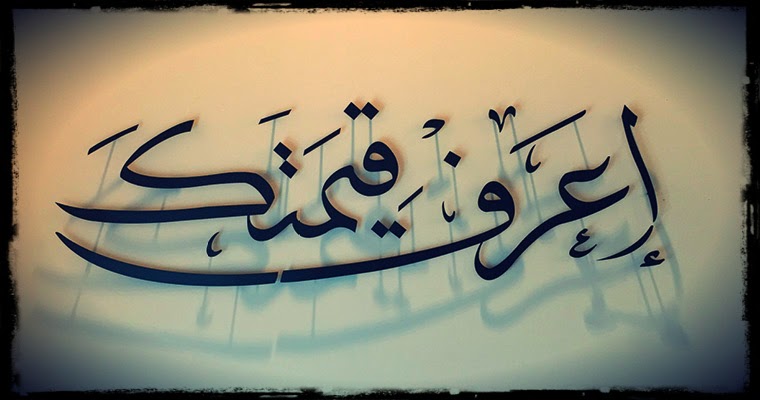 إعرف قيمتك